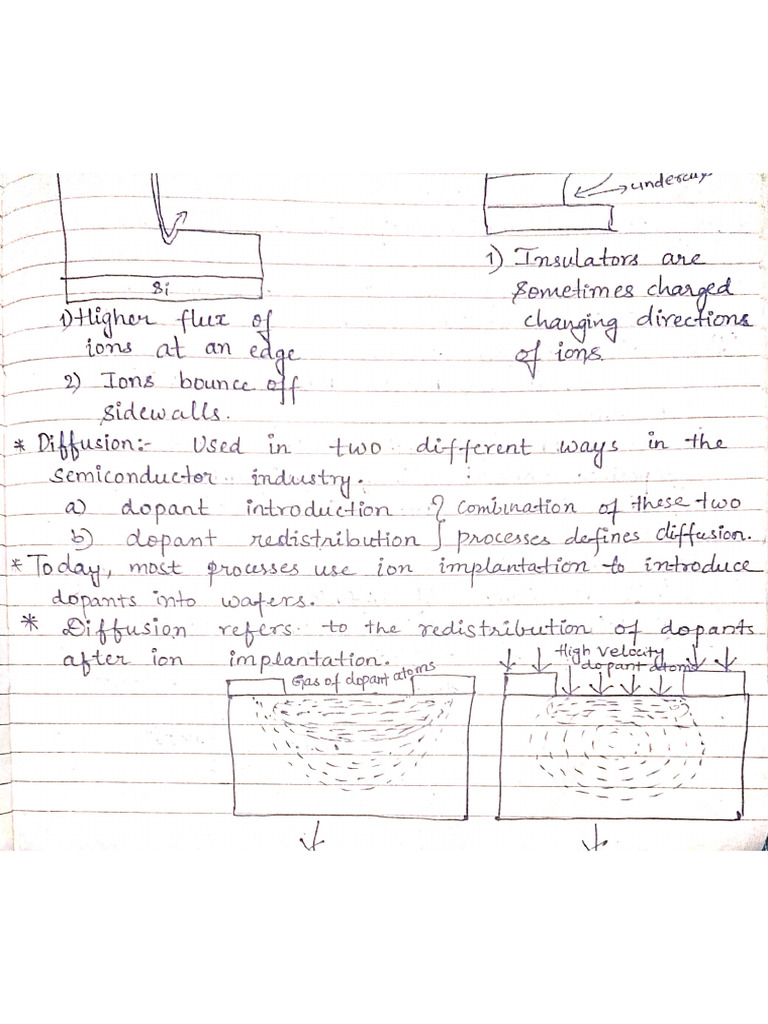 undercut
Si
1) Higher flux of
ions at an edge
2) Ions bounce off
sidewalls.
1) Insulators are
sometimes charged
changing directions
of ions.
* Diffusion:- Used in two different ways in the
semiconductor industry.
a) dopant introduction } combination of these two
b) dopant redistribution } processes defines diffusion.
* Today, most processes use ion implantation to introduce
dopants into wafers.
* Diffusion refers to the redistribution of dopants
after ion implantation.
Gas of dopant atoms
High Velocity
dopant atoms